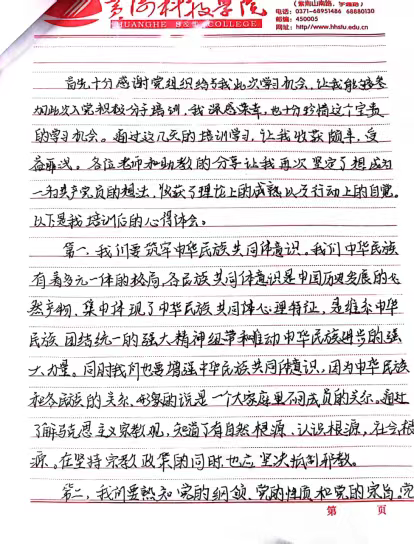 黄河科技学院
HUANGHE S&T COLLEGE
电话:0371-68951486 68880130
邮编:450005
网址:http://www.hhstu.cn
首先十分感谢党组织给与我此次学习机会,让我能够参
加此次入党积极分子培训,我深感荣幸,也十分珍惜这个宝贵
的学习机会。通过这几天的培训学习,让我收获颇丰,受
益匪浅。各位老师和助教的分享让我再次坚定了想成为
一名共产党员的想法,收获了理论上的成熟以及行动上的自觉。
以下是我培训后的心得体会。
第一,我们要筑牢中华民族共同体意识。我们中华民族
有着多元一体的格局,各民族共同体意识是中国历史发展的必
然产物,集中体现了中华民族共同体心理特征,是维系中华
民族团结统一的强大精神纽带和推动中华民族进步的强
大力量。同时我们也要增强中华民族共同体意识,因为中华民族
和各民族的关系,形象的说是一个大家庭里不同成员的关系,通过
了解马克思主义宗教观,知道了有自然根源,认识根源,社会根
源。在坚持宗教政策的同时,也应坚决抵制邪教。
第二,我们要熟知党的纲领,党的性质和党的宗旨。党
第 页